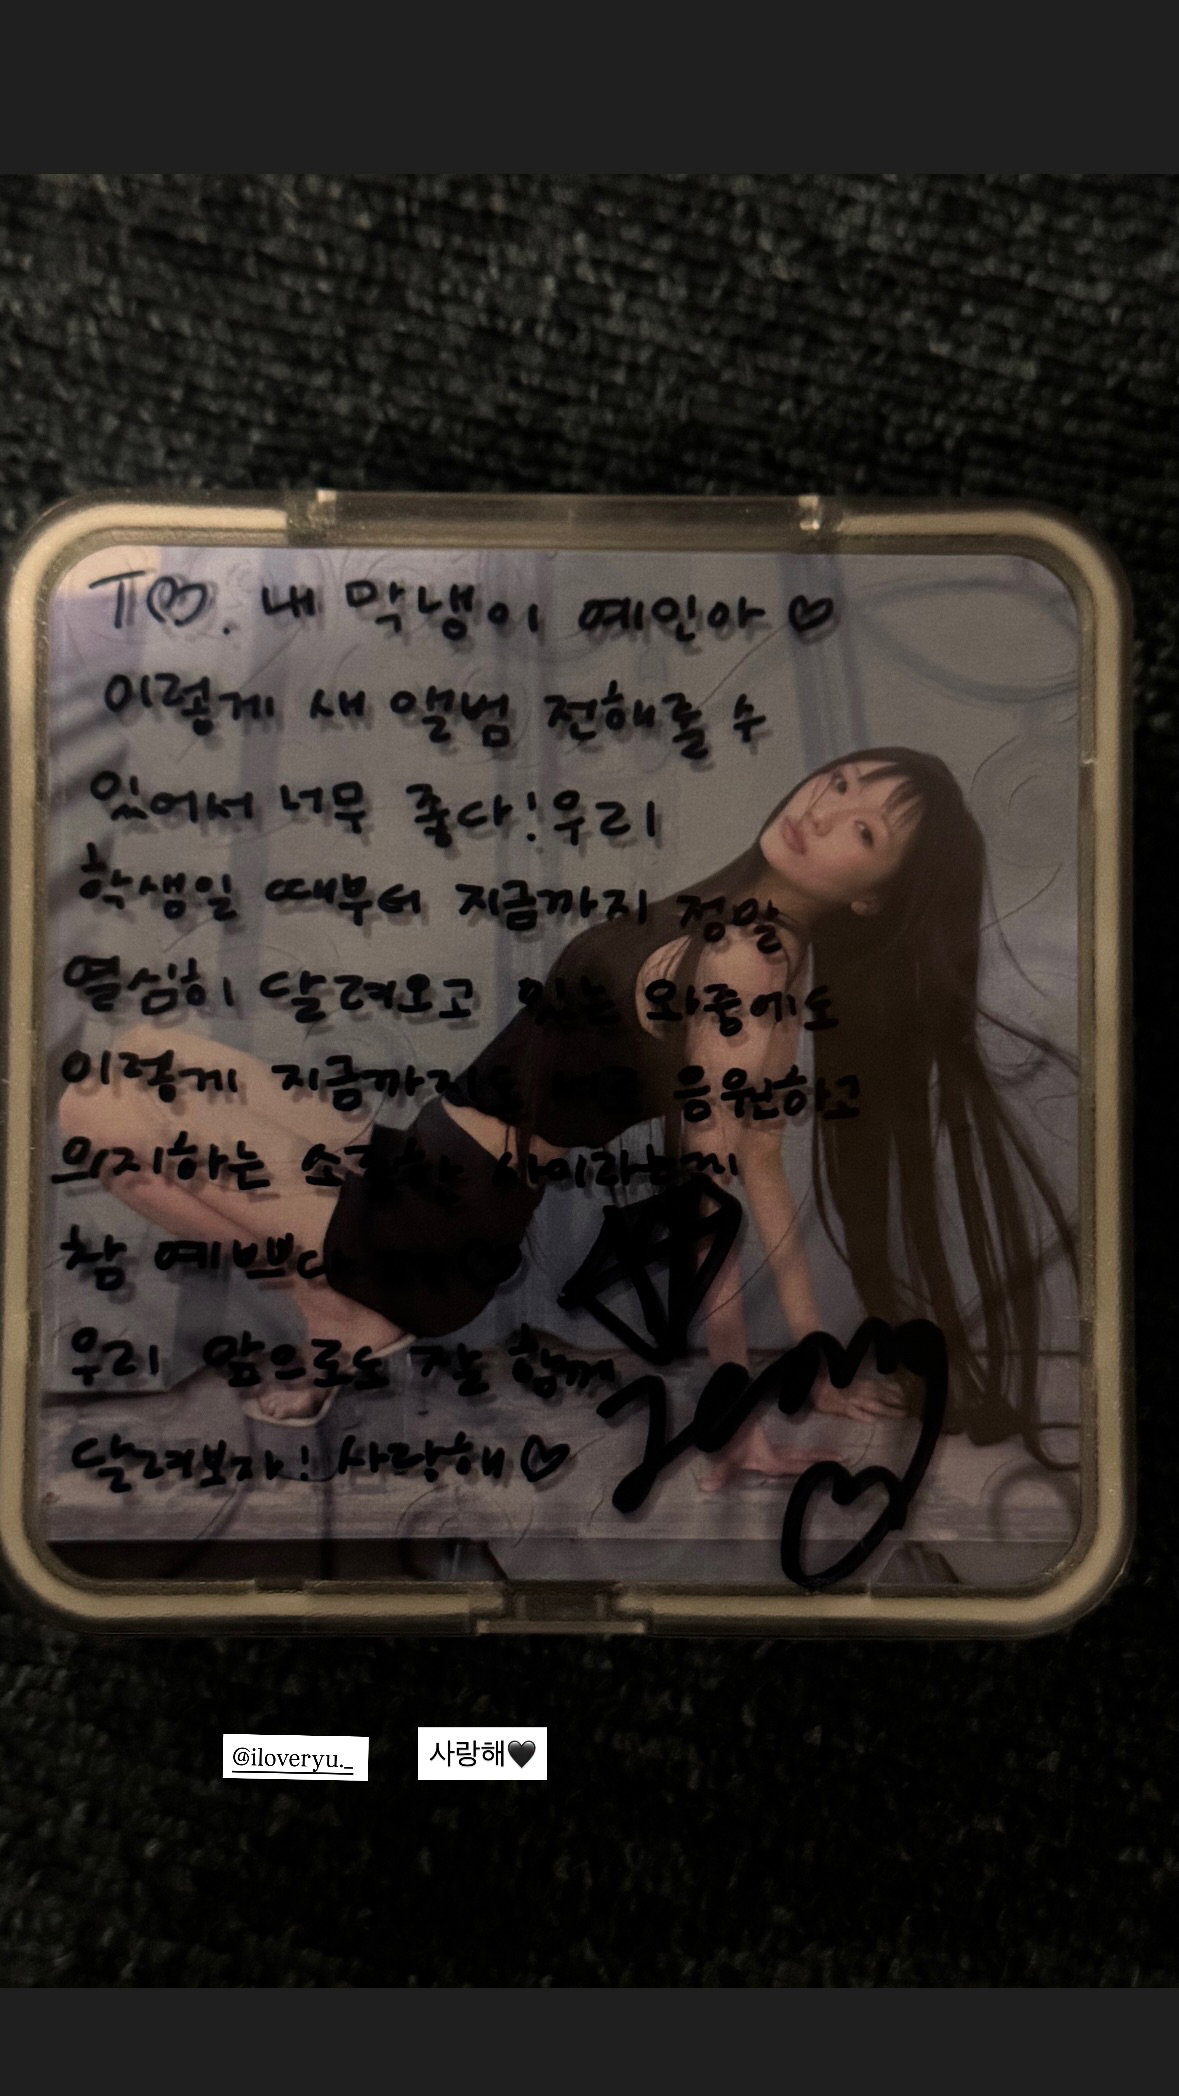 To. 내 막냉이 예인아 ♡
이렇게 새 앨범 전해줄 수
있어서 너무 좋다! 우리
학생일 때부터 지금까지 정말
열심히 달려오고 있는 와중에도
이렇게 지금까지도 서로 응원하고
의지하는 소중한 사이라는게
참 예쁘다 ♡
우리 앞으로도 잘 함께
달려보자! 사랑해 ♡
@iloveryu._
사랑해🖤